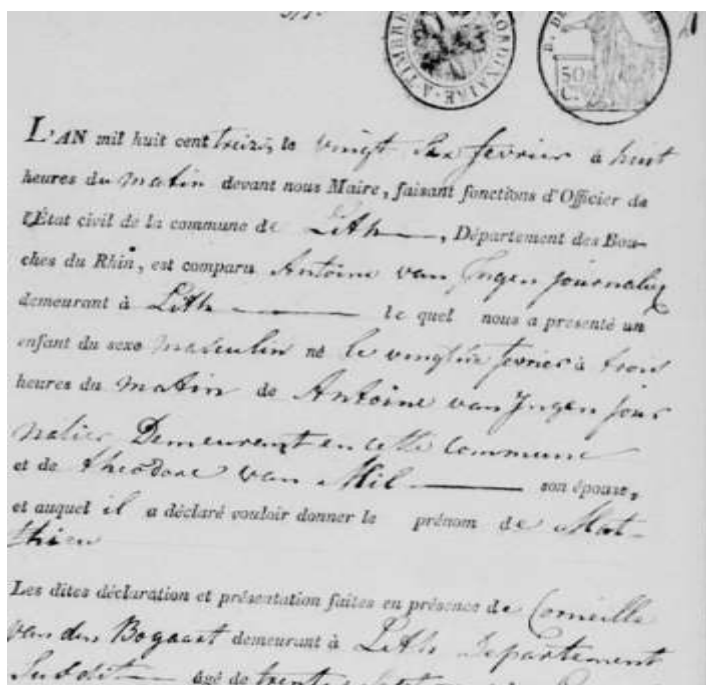 A TIMBRE
ORDINAIRE
50
C.
L'AN mil huit cent treize, le vingt six fevrier à huit
heures du matin devant nous Maire, faisant fonctions d'Officier de
l'État civil de la commune de Lith, Département des Bou-
ches du Rhin, est comparu Antoine van Ingen journalier
demeurant à Lith le quel nous a presenté un
enfant du sexe masculin né le vingt six fevrier à trois
heures du matin de Antoine van Ingen jour
nalier Demeurent en cette Commune
et de théodore van Mil son épouse,
et auquel il a déclaré vouloir donner le prénom de Mat-
thieu
Les dites déclaration et présentation faites en présence de Corneille
van den Bogaart demeurant à Lith Departement
Susdit âgé de trente